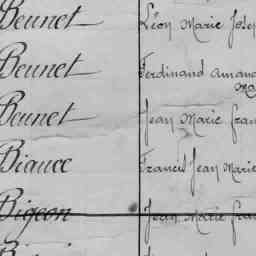 Beunet Léon Marie Josep
Beunet Ferdinand Amand
Ma
Beunet Jean Marie Fran
Bianec Francis Jean Marie
Bigeon Jean Marie Fran